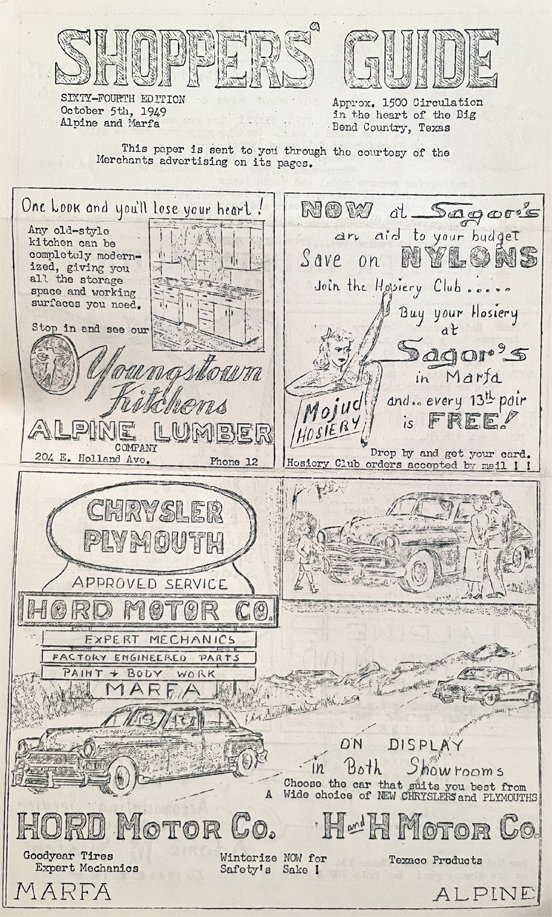 SHOPPERS' GUIDE
SIXTY-FOURTH EDITION
October 5th, 1949
Alpine and Marfa
Approx. 1500 Circulation
in the heart of the Big
Bend Country, Texas
This paper is sent to you through the courtesy of the
Merchants advertising on its pages.
One Look and you'll lose your heart!
Any old-style
kitchen can be
completely modern-
ized, giving you
all the storage
space and working
surfaces you need.
Stop in and see our
Youngstown
Kitchens
ALPINE LUMBER
COMPANY
204 E. Holland Ave. Phone 12
NOW at Sagor's
an aid to your budget
Save on NYLONS
Join the Hosiery Club.....
Buy your Hosiery
at
Sagor's
in Marfa
and.. every 13th pair
is FREE!
Mojud
HOSIERY
Drop by and get your card.
Hosiery Club orders accepted by mail ! !
CHRYSLER
PLYMOUTH
APPROVED SERVICE
HORD MOTOR CO.
EXPERT MECHANICS
FACTORY ENGINEERED PARTS
PAINT + BODY WORK
MARFA
ON DISPLAY
in Both Showrooms
Choose the car that suits you best from
A Wide choice of NEW CHRYSLERS and PLYMOUTHS
HORD MOTOR CO.
Goodyear Tires
Expert Mechanics
MARFA
Winterize NOW for
Safety's Sake !
H and H MOTOR CO.
Texaco Products
ALPINE